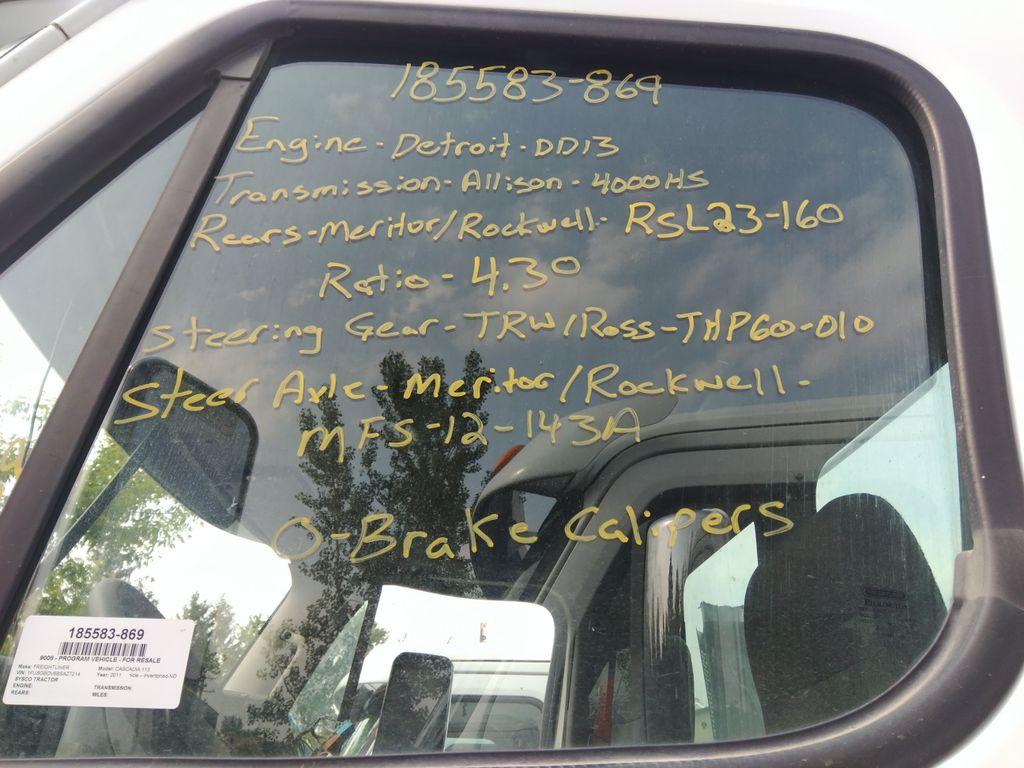 185583-869
Engine - Detroit - DD13
Transmission - Allison - 4000HS
Rears - Meritor/Rockwell - RSL23-160
Ratio - 4.30
Steering Gear - TRW/Ross - THP60-010
Steer Axle - Meritor/Rockwell -
MFS-12-143A
0-Brake Calipers
185583-869
9005 - PROGRAM VEHICLE - FOR RESALE
Make: FREIGHTLINER Model: CASCADIA 113
VIN: Year: 2011
SYSCO TRACTOR
ENGINE: TRANSMISSION:
REARS: MILES: